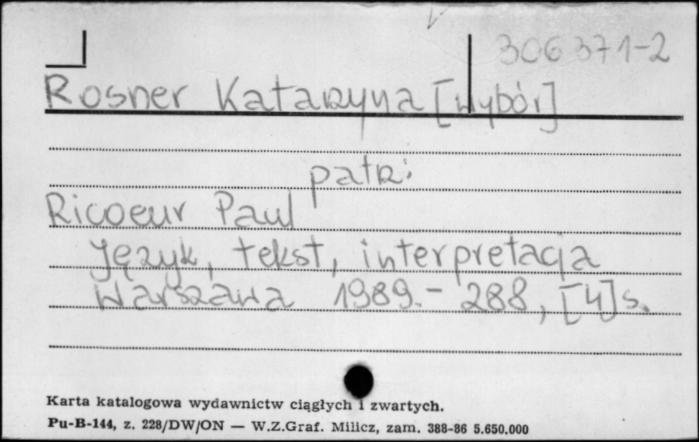 306371-2
Rosner Katarzyna [wybór]
patrz:
Ricoeur Paul
Język, tekst, interpretacja
Warszawa 1989.- 288, [4]s.
Karta katalogowa wydawnictw ciągłych i zwartych.
Pu-B-144, z. 228/DW/ON — W.Z.Graf. Milicz, zam. 388-86 5.650.000